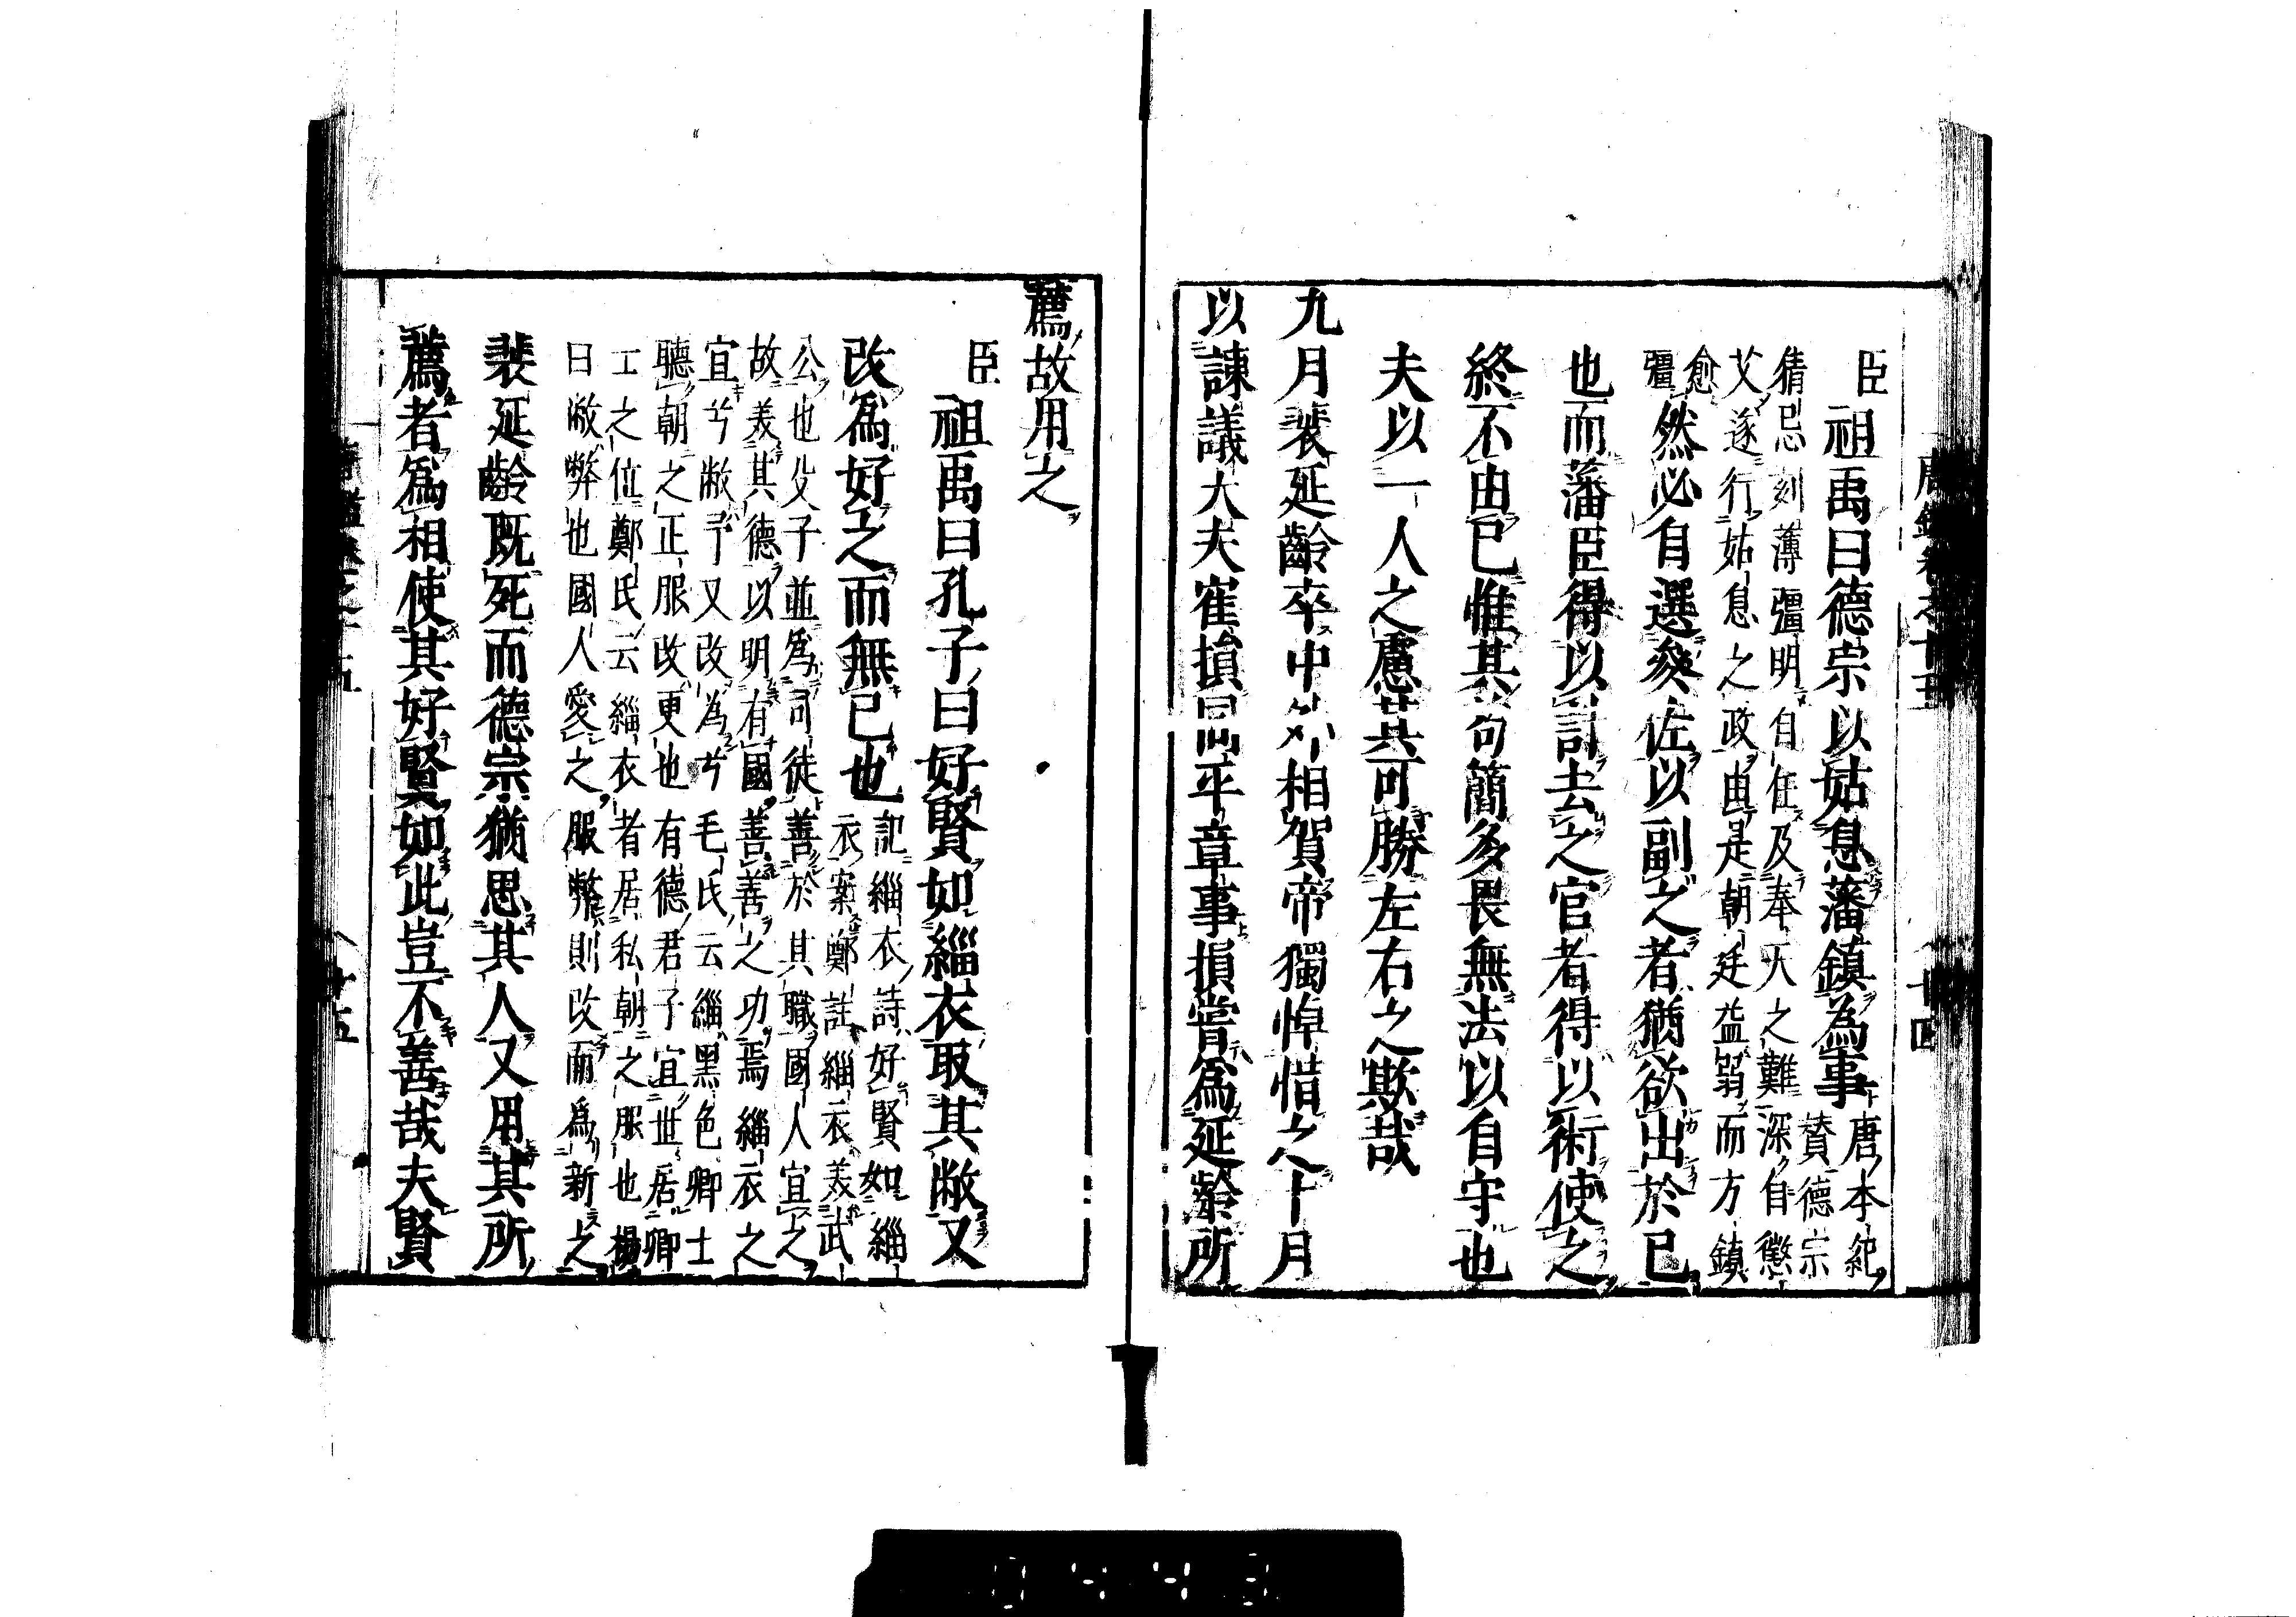 唐鑑卷之十五 十四
臣祖禹曰德宗以姑息藩鎮為事唐本紀
贊德宗
猜忌刻薄彊明自任及奉天之難深自懲
艾遂行姑息之政由是朝廷益弱而方鎮
愈
彊然必自選參佐以副之者猶欲出於已
也而藩臣得以計去之官者得以術使之
終不由已惟其苟簡多畏無法以自守也
夫以一人之慮其可勝左右之欺哉
九月裴延齡卒中外相賀帝獨悼惜之十月
以諫議大夫崔損同平章事損嘗爲延齡所
薦故用之
臣祖禹曰孔子曰好賢如緇衣取其敝又
改爲好之而無已也記緇衣詩好賢如緇
衣案鄭註緇衣美武
公也父子並爲司徒善於其職國人宜之
故美其德以明有國善善之功焉緇衣之
宜兮敝予又改為兮毛氏云緇黑色卿士
聽朝之正服改更也有德君子宜世居卿
士之位鄭氏云緇衣者居私朝之服也楊
曰敝弊也國人愛之服弊則改而爲新之
裴延齡既死而德宗猶思其人又用其所
薦者爲相使其好賢如此豈不善哉夫賢